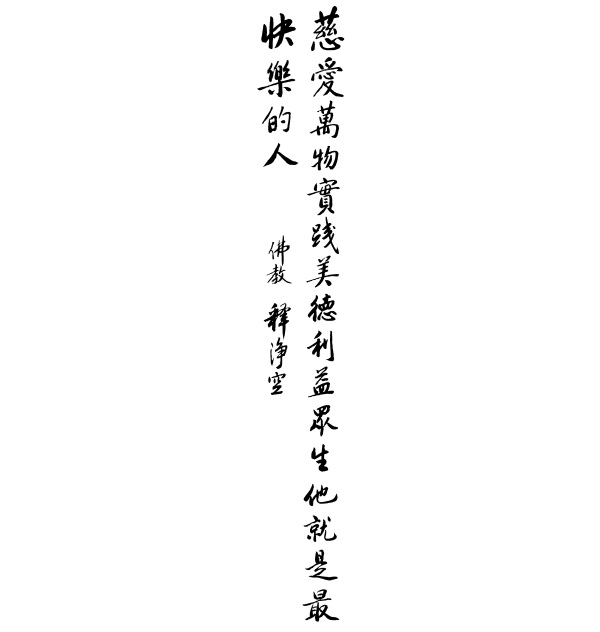 慈愛萬物實踐美德利益眾生他就是最
快樂的人
佛教 釋淨空